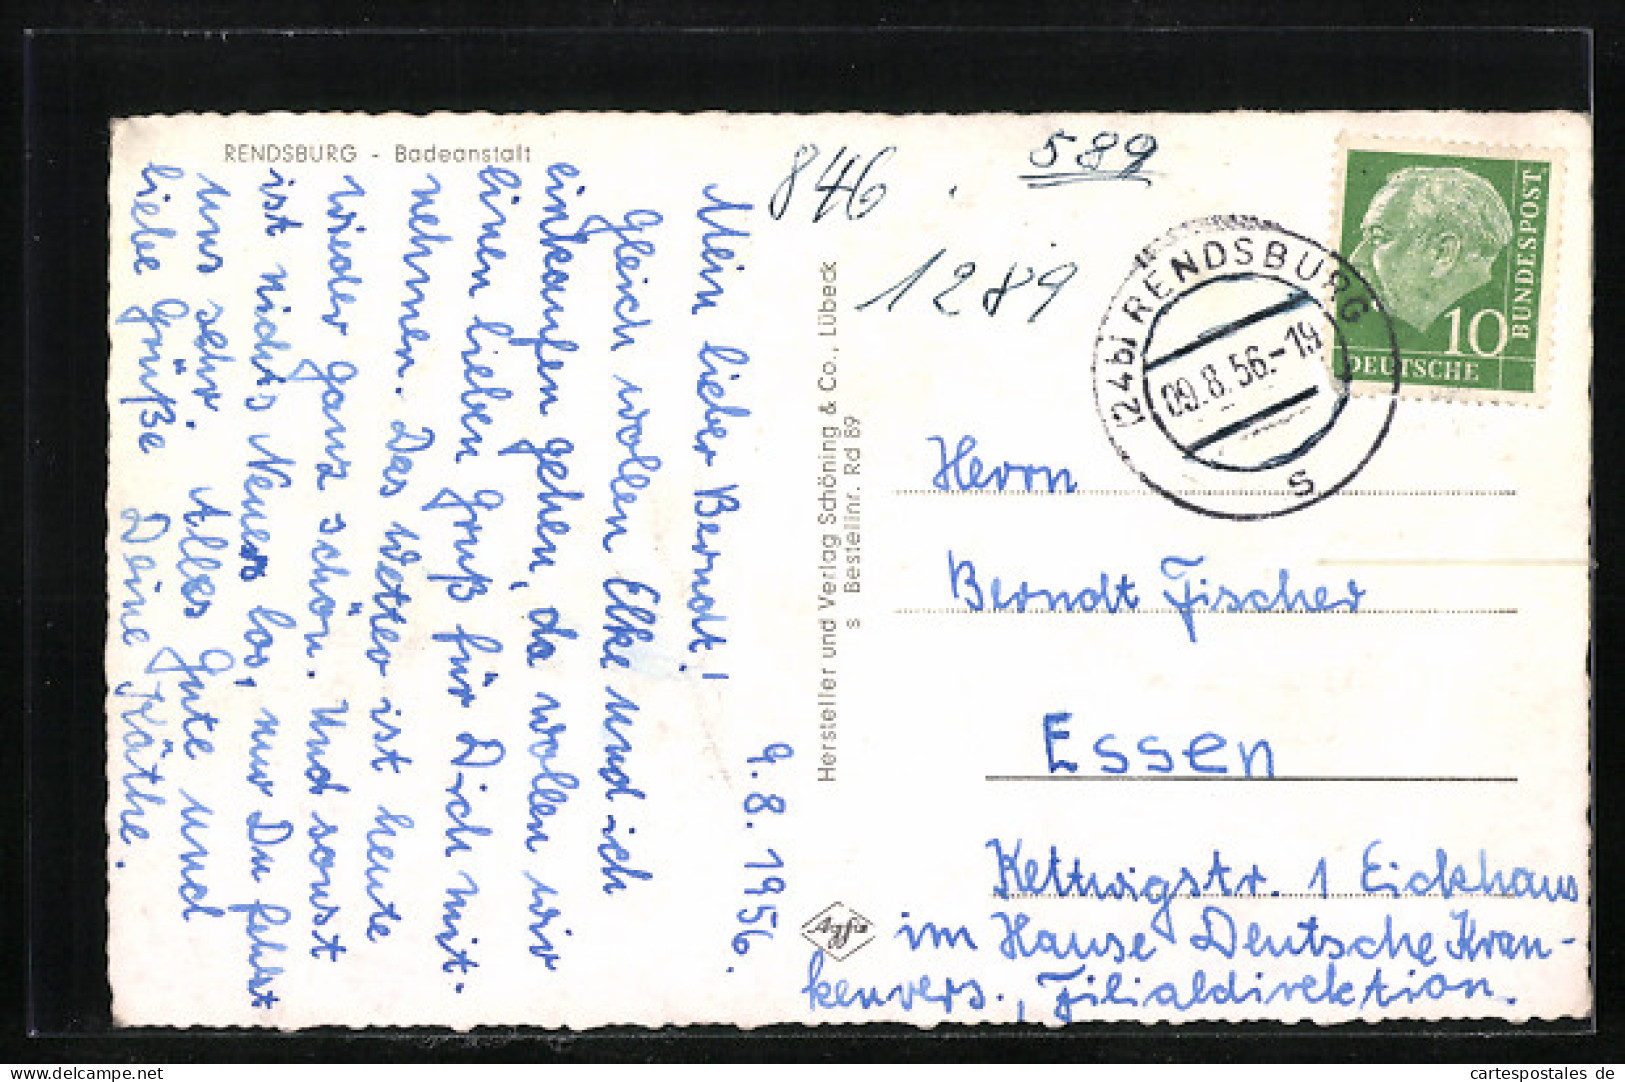 RENDSBURG - Badeanstalt
9.8.1956.
Mein lieber Berndt!
Gleich wollen Elke und ich
einkaufen gehen, da wollen wir
einen lieben Gruß für Dich mit-
nehmen. Das Wetter ist heute
wieder ganz schön. Und sonst
ist nichts Neues los, nur Du fehlst
uns sehr. Alles Gute und
liebe Grüße Deine Käthe.
Hersteller und Verlag Schöning & Co., Lübeck
s Bestellnr. Rd 89
Agfa
846 . 589
1289
(24b) RENDSBURG
09.8.56.-19
s
10
DEUTSCHE
BUNDESPOST
Herrn
Berndt Fischer
Essen
Kettwigstr. 1 Eickhaus
im Hause Deutsche Kran-
kenvers., Filialdirektion.
cartespostales.de
www.delcampe.net